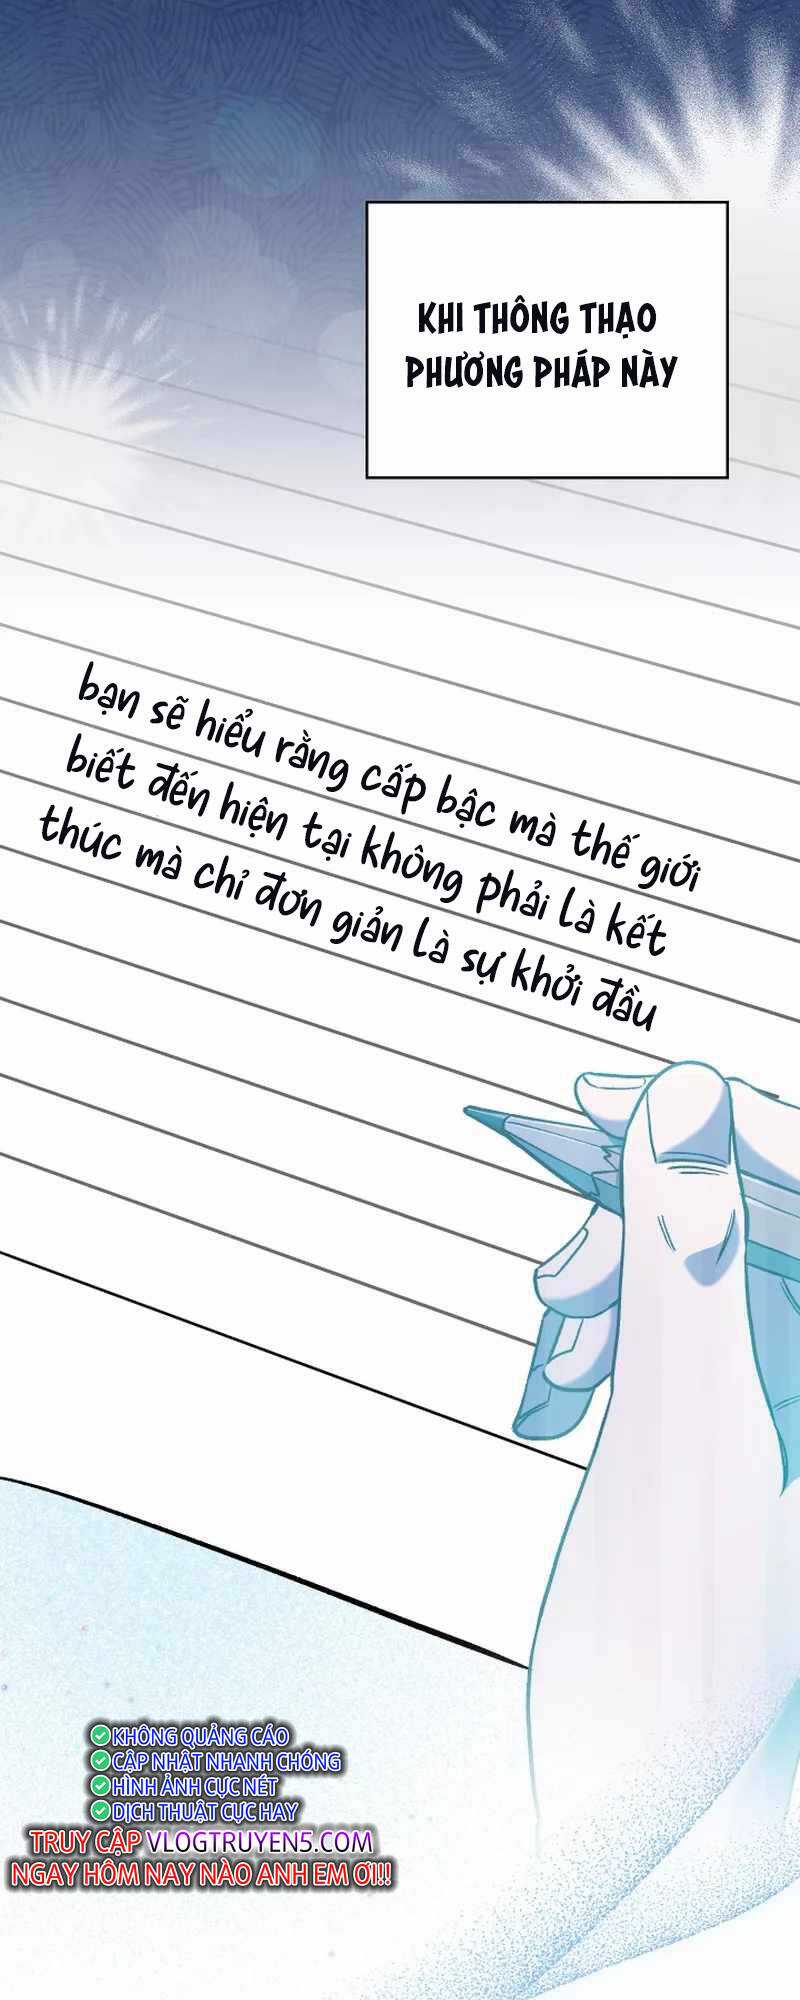 KHI THÔNG THẠO
PHƯƠNG PHÁP NÀY
bạn sẽ hiểu rằng cấp bậc mà thế giới
biết đến hiện tại không phải là kết
thúc mà chỉ đơn giản là sự khởi đầu
KHÔNG QUẢNG CÁO
CẬP NHẬT NHANH CHÓNG
HÌNH ẢNH CỰC NÉT
DỊCH THUẬT CỰC HAY
TRUY CẬP VLOGTRUYEN5.COM
NGAY HÔM NAY NÀO ANH EM ƠI!!